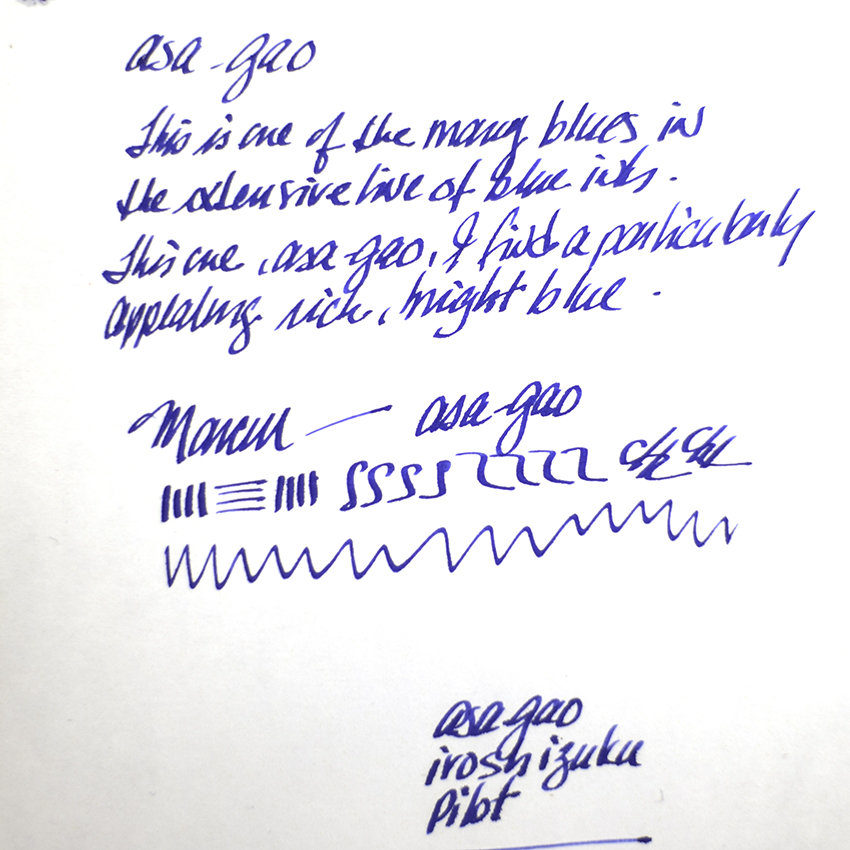 asa-gao
This is one of the many blues in
the extensive line of blue inks.
This one, asa-gao, I find a particularly
appealing rich, bright blue.
asa-gao
asa gao
iroshizuku
Pilot